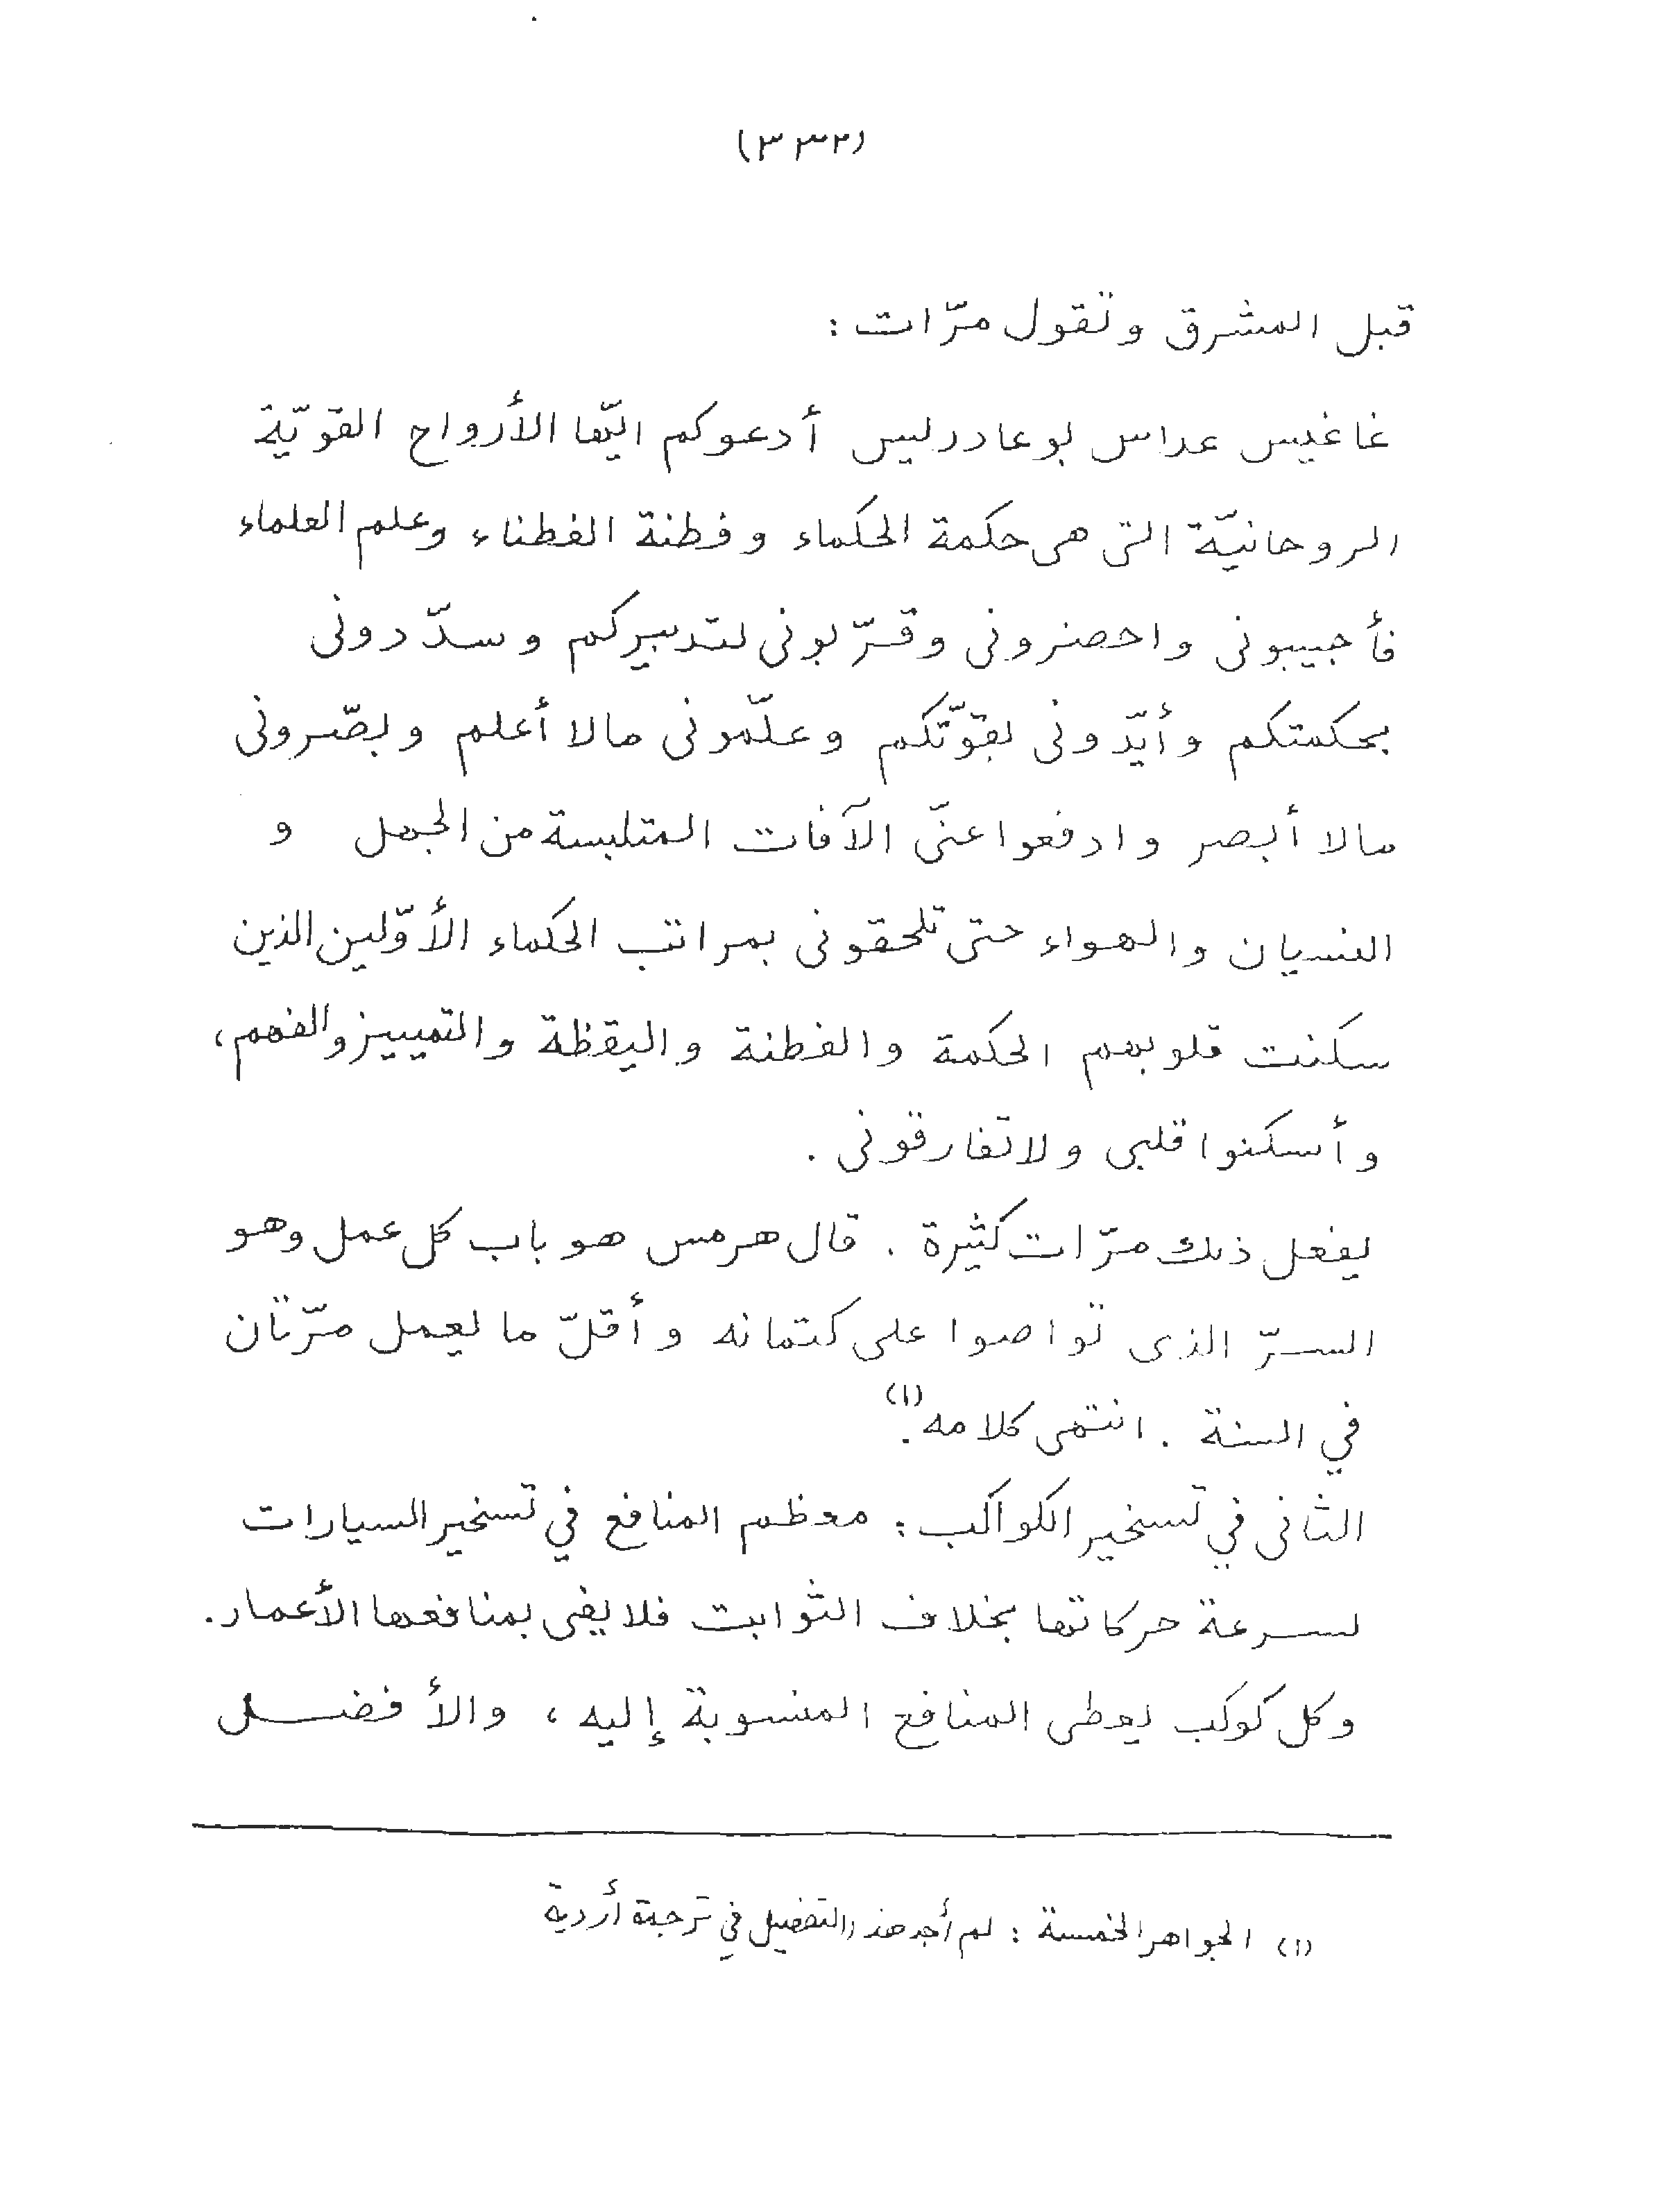 (٣٣٢)
قبل المشرق وتقول مرّات :
غاغيس عداس بوعادرليس أدعوكم ايّها الأرواح القويّة
الروحانيّة التى هى حكمة الحكماء وفطنة الفطناء وعلم العلماء
فأجيبونى واحضرونى وقرّبونى لتدبيركم وسدّدونى
بحكمتكم وأيّدونى بقوّتكم وعلّمونى مالا أعلم وبصّرونى
مالا أبصر وادفعوا عنّى الآفات المتلبسة من الجهل و
النسيان والهواء حتى تلحقونى بمراتب الحكماء الأوّلين الذين
سكنت قلوبهم الحكمة والفطنة واليقظة والتمييز والفهم،
وأسكنوا قلبى ولا تفارقونى .
يفعل ذلك مرّات كثيرة . قال هرمس هو باب كل عمل وهو
السرّ الذى تواصوا على كتمانه وأقلّ ما يعمل مرّتان
في السنة . انتهى كلامه (١).
الثانى في تسخير الكواكب : معظم المنافع في تسخير السيارات
لسرعة حركاتها بخلاف الثوابت فلا يفى بمنافعها الأعمار.
وكل كوكب يعطى المنافع المنسوبة إليه ، والأفضل
(١) الجواهر الخمسة : لم أجد هذا التفضيل في ترجمة أردية